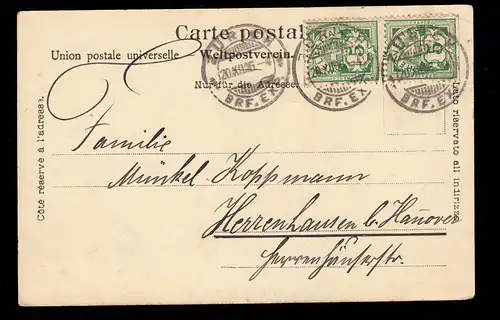 Carte postale
Union postale universelle. Weltpostverein.
Nur für die Adresse
Côté réservé à l'adresse.
lato riservato all indirizzo
BRF. EXP.
BRF. EX
BRF. EX
5
5
Familie
Münkel-Koppmann
Herrenhausen b. Hannover
Herrenhäuserstr.